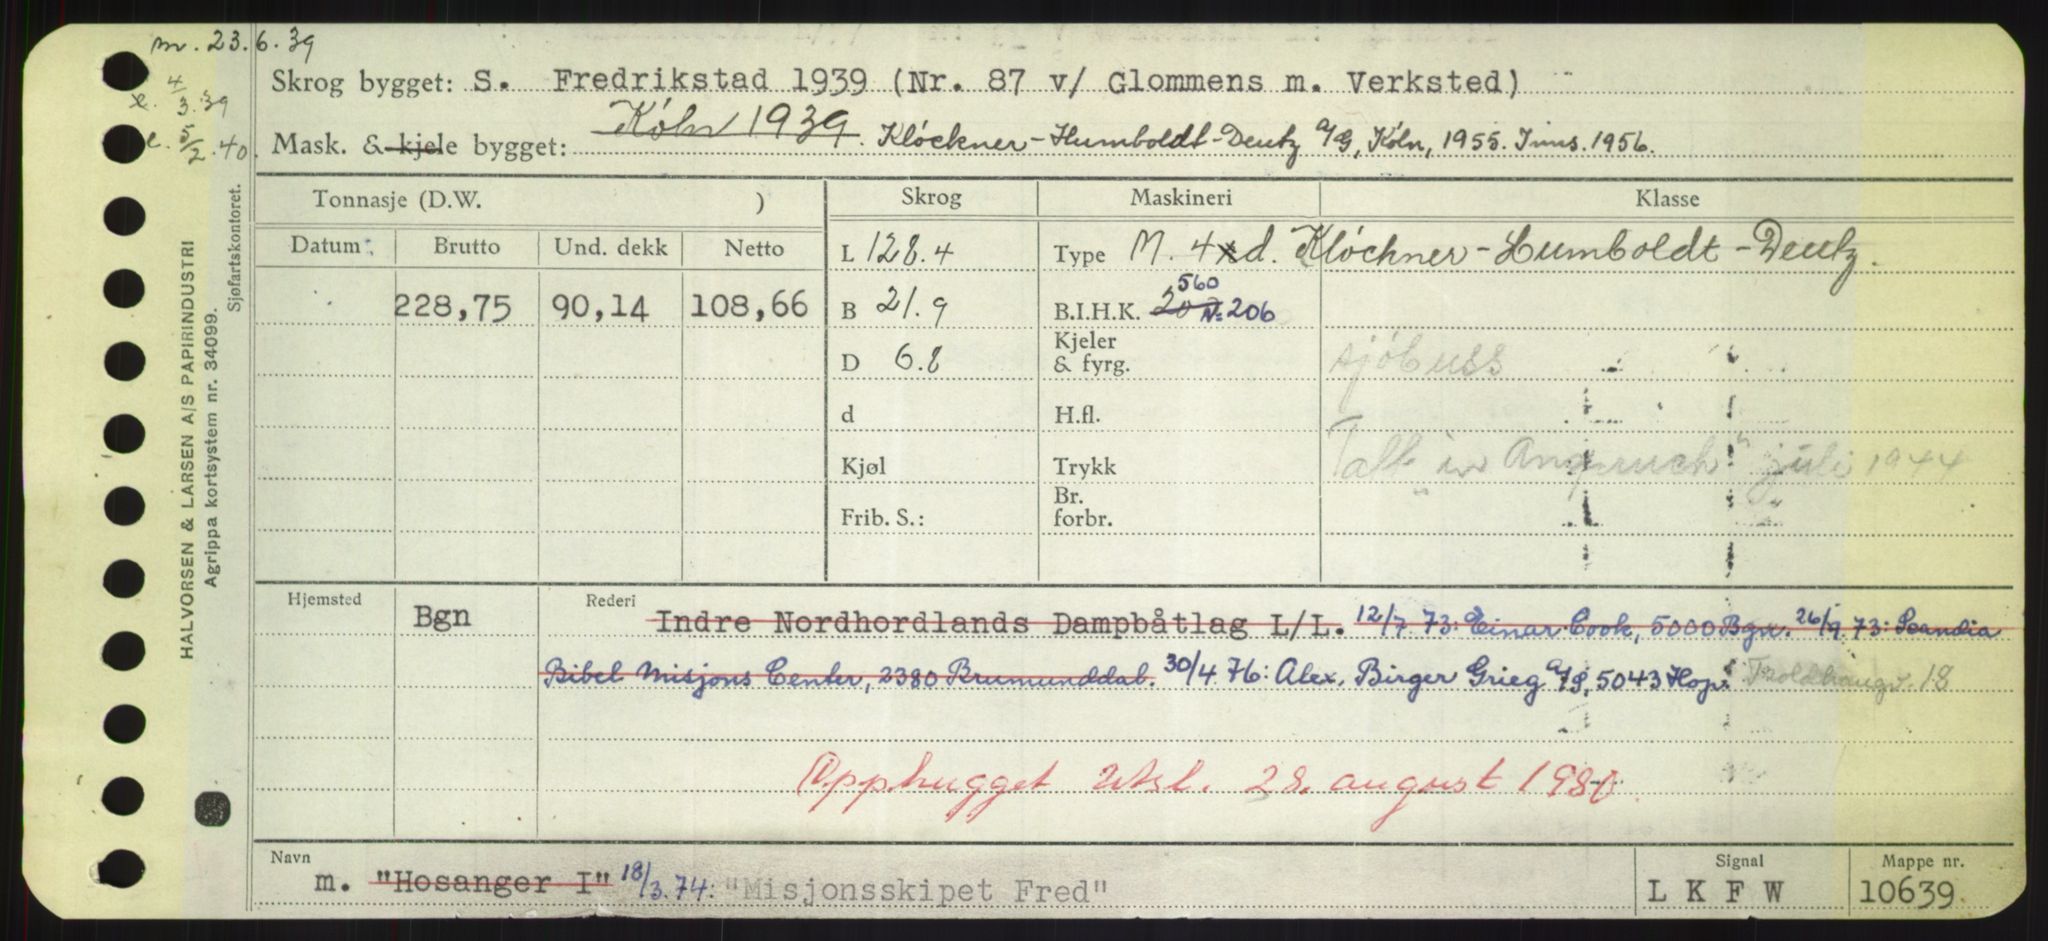 m. 23.6.39
e. 4/3.39
e. 5/2.40.
Skrog bygget: S. Fredrikstad 1939 (Nr. 87 v/ Glommens m. Verksted)
Mask. & kjele bygget: Köln 1939. Klöckner-Humboldt-Deutz A/G, Köln, 1955. Inns. 1956.
Tonnasje (D.W. ) Skrog Maskineri Klasse
Datum Brutto Und. dekk Netto L 128.4 Type M. 4xd. Klöckner-Humboldt-Deutz.
560
228,75 90,14 108,66 B 21.9 B.I.H.K. N= 206
D 6.8 Kjeler & fyrg. sjöbuss
d H.fl.
Kjøl Trykk Tatt "in Anspruch" juli 1944
Frib. S.: Br. forbr.
Hjemsted Bgn Rederi Indre Nordhordlands Dampbåtlag L/L. 12/7 73: Einar Cook, 5000 Bgn. 26/9 73: Scandia
Bibel Misjons Center, 2380 Brumunddal. 30/4 76: Alex. Birger Grieg A/S, 5043 Hop. Troldhaugv. 18
Opphugget Utsl. 28. august 1980.
Navn Signal Mappe nr.
m. "Hosanger I" 18/3.74: "Misjonsskipet Fred" LKFW 10639
HALVORSEN & LARSEN A/S PAPIRINDUSTRI
Agrippa kortsystem nr. 34099.
Sjøfartskontoret.